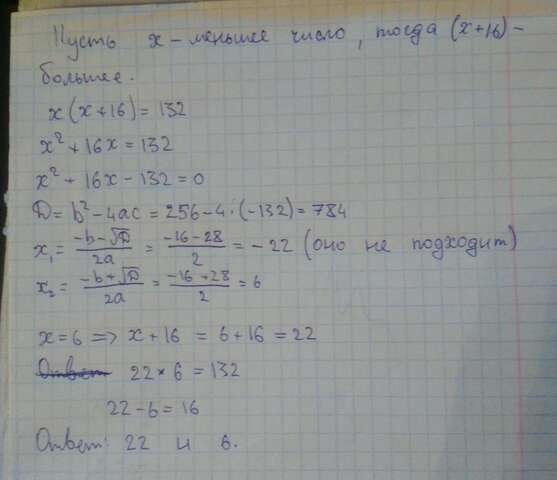 Пусть x – меньшее число, тогда (x+16) –
большее.
x(x+16) = 132
x² + 16x = 132
x² + 16x - 132 = 0
D = b² - 4ac = 256 - 4·(-132) = 784
x₁ = (-b-√D)/2a = (-16-28)/2 = -22 (оно не подходит)
x₂ = (-b+√D)/2a = (-16+28)/2 = 6
x = 6 => x + 16 = 6 + 16 = 22
Ответ 22 × 6 = 132
22 - 6 = 16
Ответ: 22 и 6.